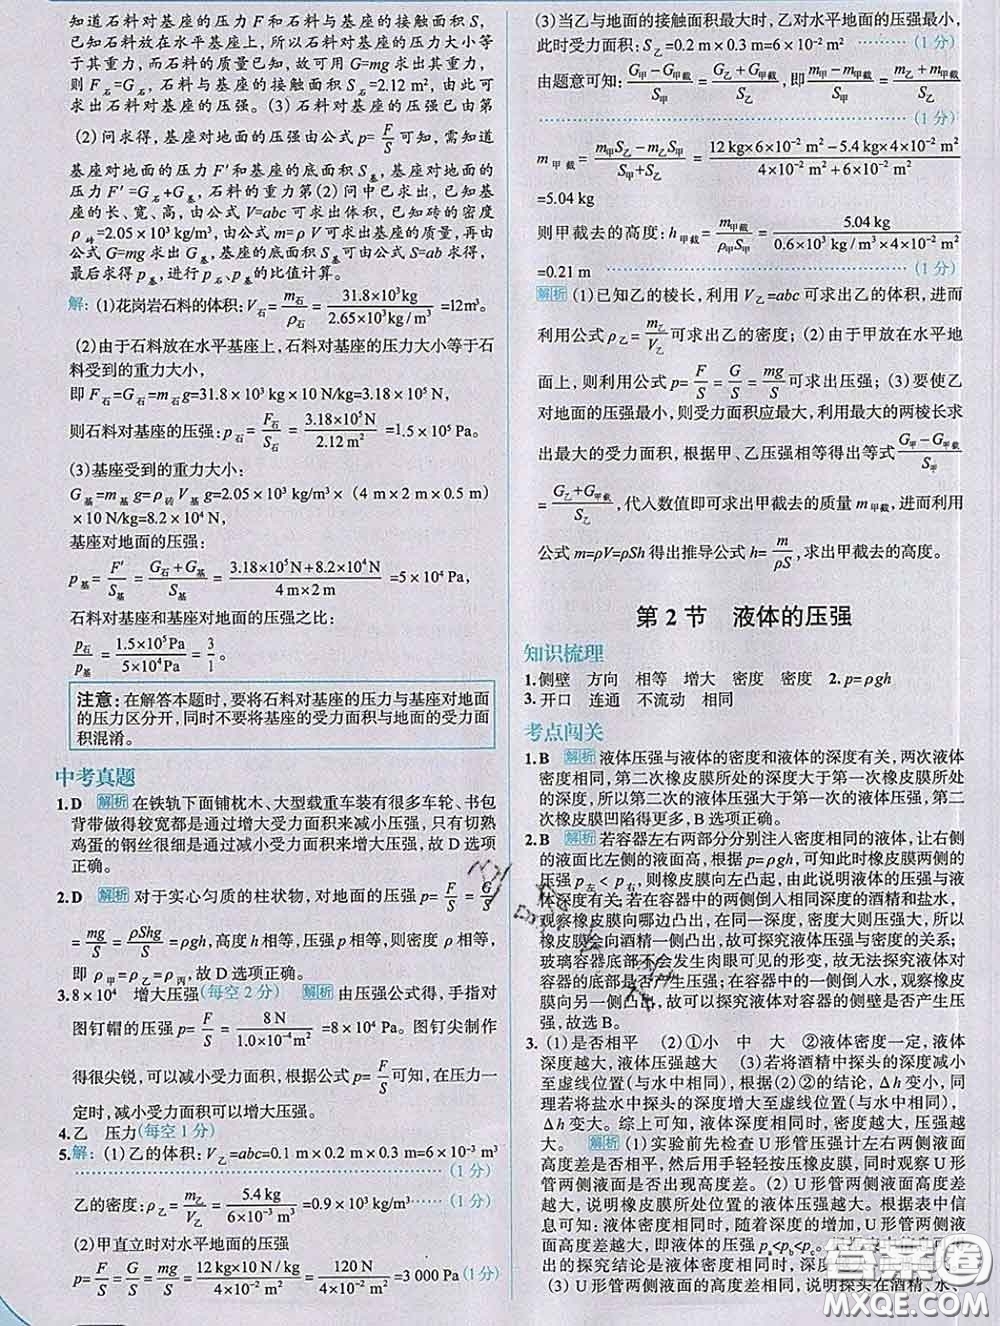 知道石料对基座的压力F和石料与基座的接触面积S,
已知石料放在水平基座上,所以石料对基座的压力大小等
于其重力,而石料的质量已知,故可用G=mg求出其重力,
则F石=G石,石料与基座的接触面积S石=2.12 m²,由此可
求出石料对基座的压强。(3)石料对基座的压强已由第
(2)问求得,基座对地面的压强由公式p=F/S可知,需知道
基座对地面的压力F′和基座的底面积S基,基座对地面的
压力F′=G石+G基,石料的重力第(2)问中已求出,已知基
座的长、宽、高,由公式V=abc可求出体积,已知砖的密度
ρ砖=2.05×10³ kg/m³,由公式m=ρV可求出基座的质量,再由
公式G=mg求出G基,基座的底面积S基可由公式S=ab求得,
最后求得p基,进行p石、p基的比值计算。
解:(1)花岗岩石料的体积:V石=m石/ρ石=31.8×10³kg/2.65×10³kg/m³=12m³。
(2)由于石料放在水平基座上,石料对基座的压力大小等于石
料受到的重力大小,
即F石=G石=m石g=31.8×10³ kg×10 N/kg=3.18×10⁵ N,
则石料对基座的压强:p石=F石/S石=3.18×10⁵N/2.12 m²=1.5×10⁵ Pa。
(3)基座受到的重力大小:
G基=m基g=ρ砖V基g=2.05×10³ kg/m³×(4 m×2 m×0.5 m)
×10 N/kg=8.2×10⁴ N,
基座对地面的压强:
p基=F′/S基=G石+G基/S基=3.18×10⁵N+8.2×10⁴N/4 m×2 m=5×10⁴ Pa,
石料对基座和基座对地面的压强之比:
p石/p基=1.5×10⁵Pa/5×10⁴Pa=3/1。
注意:在解答本题时,要将石料对基座的压力与基座对地面
的压力区分开,同时不要将基座的受力面积与地面的受力面
积混淆。
中考真题
1.D 解析 在铁轨下面铺枕木、大型载重车装有很多车轮、书包
背带做得较宽都是通过增大受力面积来减小压强,只有切熟
鸡蛋的钢丝很细是通过减小受力面积来增大压强,故D选项
正确。
2.D 解析 对于实心匀质的柱状物,对地面的压强p=F/S=G/S
=mg/S=ρShg/S=ρgh,高度h相等,压强p相等,则密度ρ相等,
即ρ甲=ρ乙=ρ丙,故D选项正确。
3.8×10⁴ 增大压强(每空2分) 解析 由压强公式得,手指对
图钉帽的压强p=F/S=8 N/1.0×10⁻⁴ m²=8×10⁴ Pa。图钉尖制作
得很尖锐,可以减小受力面积,根据公式p=F/S可知,在压力一
定时,减小受力面积可以增大压强。
4.乙 压力(每空1分)
5.解:(1)乙的体积:V乙=abc=0.1 m×0.2 m×0.3 m=6×10⁻³ m³
(1分)
乙的密度:ρ乙=m乙/V乙=5.4 kg/6×10⁻³ m³=0.9×10³ kg/m³ (1分)
(2)甲直立时对水平地面的压强
p=F/S=G/S=mg/S=12 kg×10 N/kg/4×10⁻² m²=120 N/4×10⁻² m²=3 000 Pa(1分)
(3)当乙与地面的接触面积最大时,乙对水平地面的压强最小,
此时受力面积:S乙=0.2 m×0.3 m=6×10⁻² m² (1分)
由题意可知:G甲−G甲截/S甲=G乙+G甲截/S乙,即m甲−m甲截/S甲=m乙+m甲截/S乙
(1分)
m甲截=m甲S乙−m乙S甲/S甲+S乙=12 kg×6×10⁻² m²−5.4 kg×4×10⁻² m²/4×10⁻² m²+6×10⁻² m²
=5.04 kg
则甲截去的高度:h甲截=m甲截/ρ甲S甲=5.04 kg/0.6×10³ kg/m³×4×10⁻² m²
=0.21 m (1分)
解析 (1)已知乙的棱长,利用V乙=abc可求出乙的体积,进而
利用公式ρ乙=m乙/V乙可求出乙的密度;(2)由于甲放在水平地
面上,则利用公式p=F/S=G/S=mg/S可求出压强;(3)要使乙
对地面的压强最小,则受力面积应最大,利用最大的两棱长求
出最大的受力面积,根据甲、乙压强相等得出等式G甲−G甲截/S甲
=G乙+G甲截/S乙,代入数值即可求出甲截去的质量m甲截,进而利用
公式m=ρV=ρSh得出推导公式h=m/ρS,求出甲截去的高度。
第2节 液体的压强
知识梳理
1.侧壁 方向 相等 增大 密度 密度 2.p=ρgh
3.开口 连通 不流动 相同
考点闯关
1.B 解析 液体压强与液体的密度和液体的深度有关,两次液体
密度相同,第二次橡皮膜所处的深度大于第一次橡皮膜所处
的深度,所以第二次的液体压强大于第一次的液体压强,第二
次橡皮膜凹陷得更多,B选项正确。
2.B 解析 若容器左右两部分分别注入密度相同的液体,让右侧
的液面比左侧的液面高,根据p=ρgh,可知此时橡皮膜两侧的
压强p左<p右,则橡皮膜向左凸起,由此说明液体的压强与液
体深度有关;若在容器两侧倒入相同深度的酒精和盐水,
观察橡皮膜向哪边凸出,在同一深度,密度大则压强大,所以
橡皮膜会向酒精一侧凸出,故可探究液体压强与密度的关系;
玻璃容器底部不会发生肉眼可见的形变,故无法探究液体对
容器的底部是否产生压强;在容器中的一侧倒入水,观察橡皮
膜向另一侧凸出,可以探究液体对容器的侧壁是否产生压
强,故选B。
3.(1)是否相平 (2)①小 中 大 ②液体密度一定,液体
深度越大,液体压强越大 (3)若将酒精中探头的深度减小
至虚线位置(与水中相同),根据(2)②的结论,Δh变小,同理
若将盐水中探头的深度增大至虚线位置(与水中相同),
Δh变大。综上可知,液体密度越大,压强越
大。 解析 (1)实验前先检查U形管压强计左右两侧液面
高度差是否相平,然后用手轻轻按压橡皮膜,观察U形
管两侧液面是否出现高度差。(2)U形管两侧液面高度差
越大,说明橡皮膜所处位置的液体压强越大。根据表中信
息可知:液体密度相同时,随着深度的增加,U形管两侧液
面高度差越大,即液体的压强pa<pb<pc。
出的探究结论是液体密度一定时,
(3)U形管两侧液面的高度差相同,说明探头在酒精、水、
答案圈
MXQE.COM